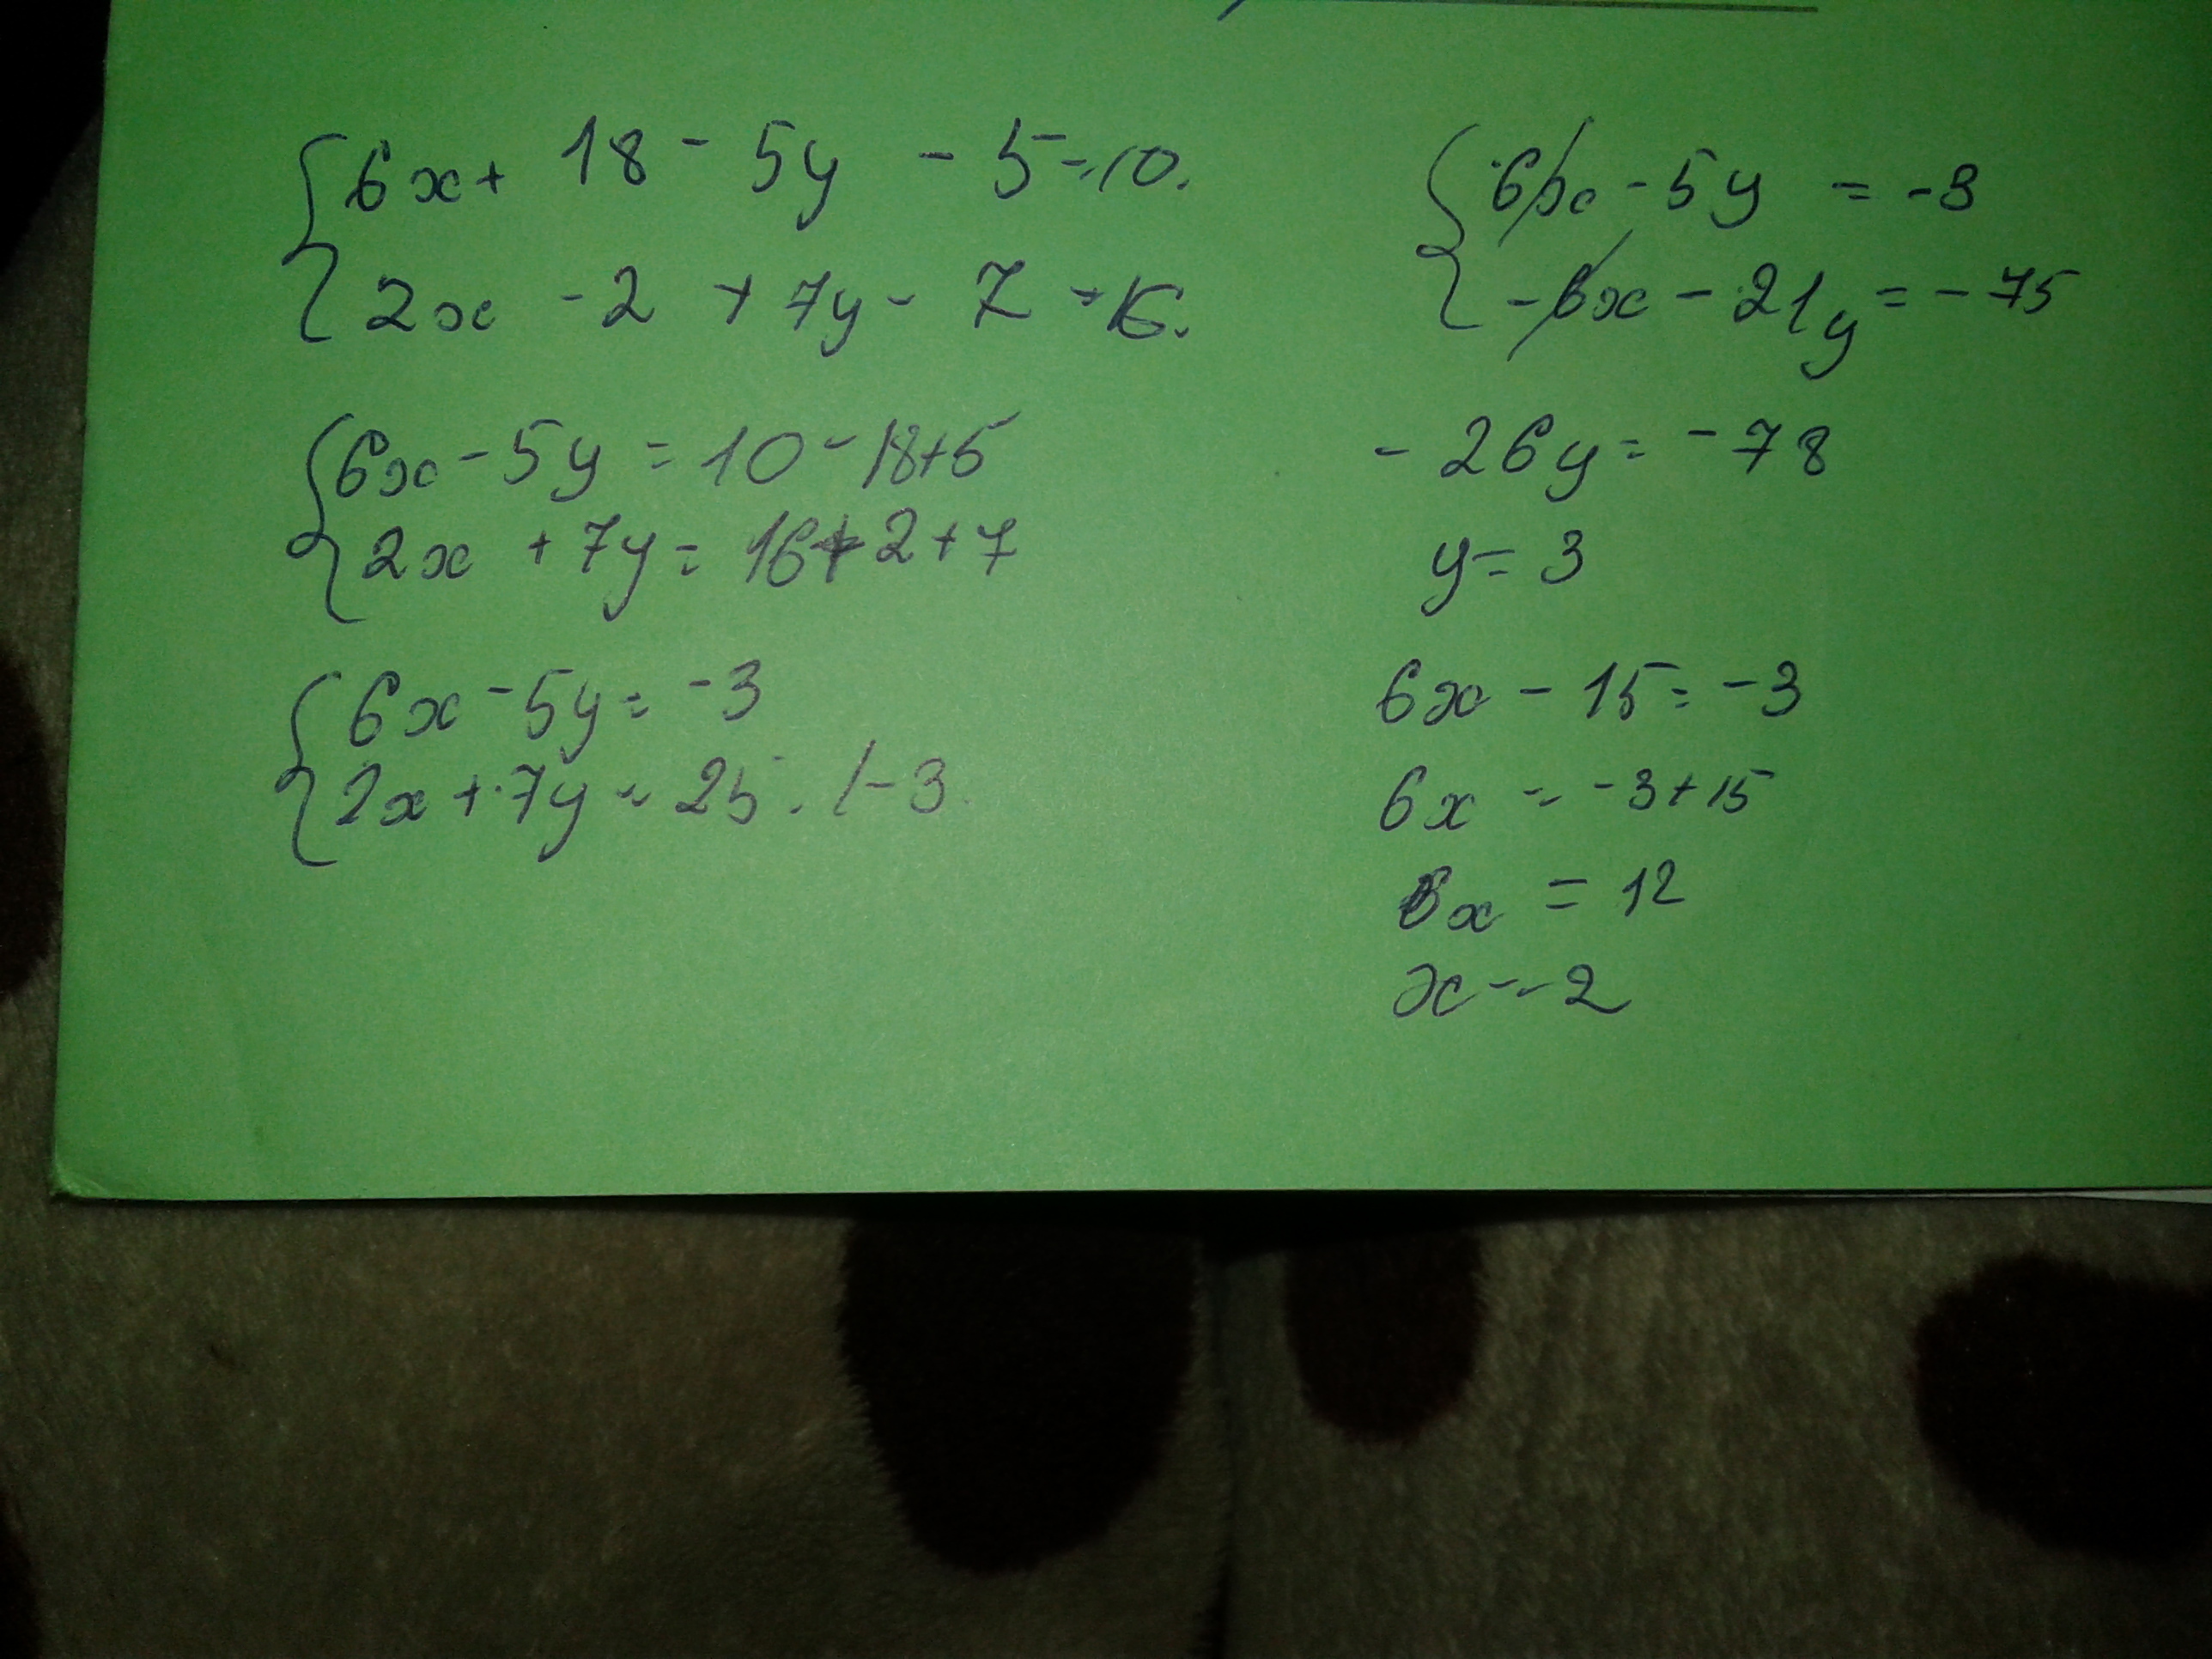 6x + 18 - 5y - 5 = 10.
2x - 2 + 7y - 7 = 16.
6x - 5y = 10 - 18 + 5
2x + 7y = 16 + 2 + 7
6x - 5y = -3
2x + 7y = 25. /-3.
6x - 5y = -3
-6x - 21y = -75
-26y = -78
y = 3
6x - 15 = -3
6x = -3 + 15
6x = 12
x = 2